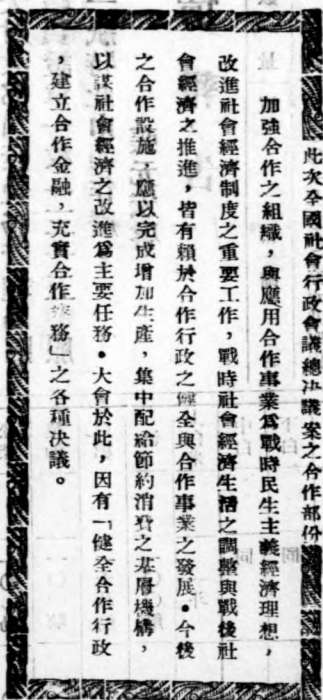 此次全國社會行政會議總決議案之合作部份
加強合作之組織，與應用合作事業爲戰時民生主義經濟理想，
改進社會經濟制度之重要工作，戰時社會經濟生活之調整與戰後社
會經濟之推進，皆有賴於合作行政之健全與合作事業之發展。今後
之合作設施，應以完成增加生產，集中配給節約消費之基層機構，
以謀社會經濟之改進爲主要任務。大會於此，因有「健全合作行政
，建立合作金融，充實合作業務」之各種決議。